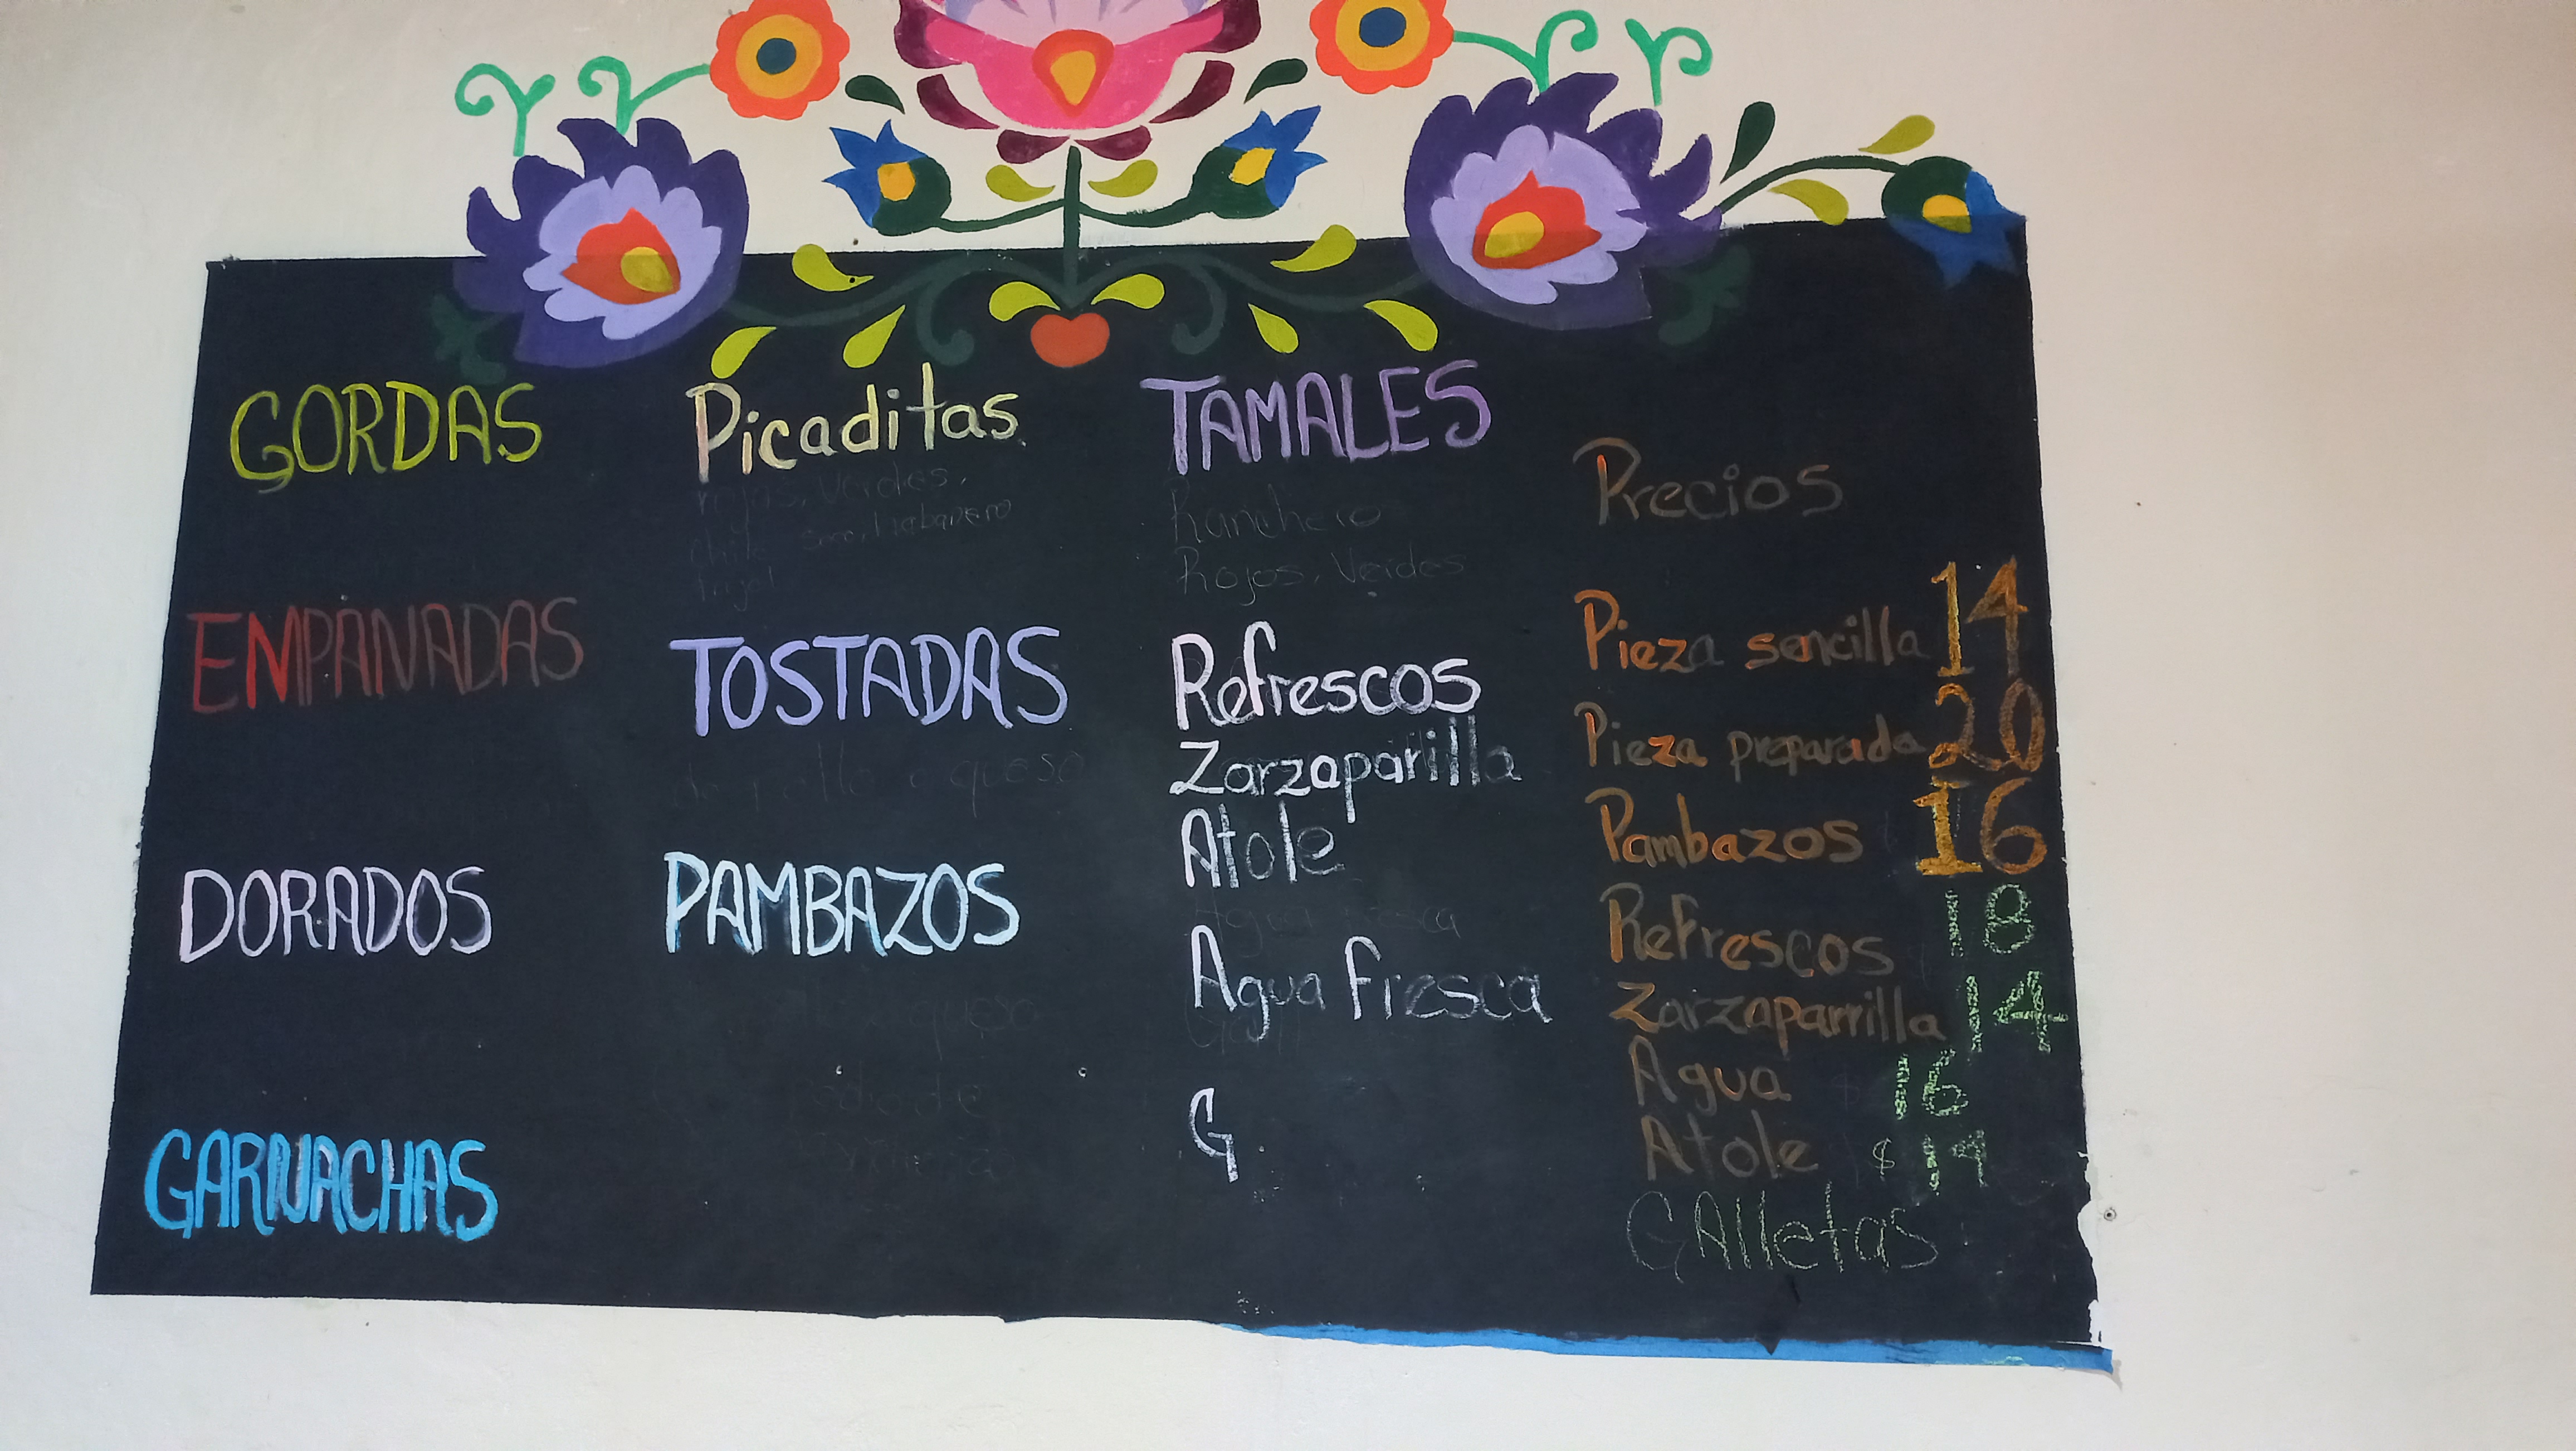 GORDAS
EMPANADAS
DORADOS
GARNACHAS
Picaditas
rojas, verdes,
habanero
TOSTADAS
queso
PAMBAZOS
queso
TAMALES
Ranchero
Rojos, Verdes
Refrescos
Zarzaparilla
Atole
Agua Fresca
G
Precios
Pieza sencilla 14
Pieza preparada 20
Pambazos 16
Refrescos 18
Zarzaparrilla 14
Agua 16
Atole $ 14
GAlletas